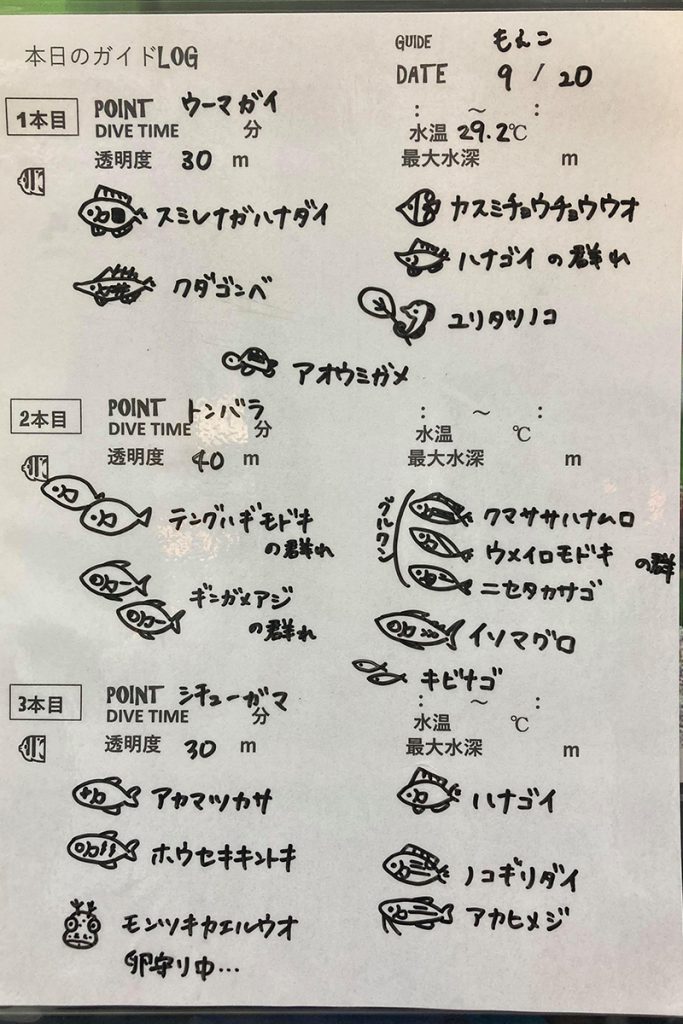 本日のガイドLOG
GUIDE もえこ
DATE 9 / 20
1本目
POINT ウーマガイ
DIVE TIME 分
透明度 30 m
: ～ :
水温 29.2℃
最大水深 m
スミレナガハナダイ
カスミチョウチョウウオ
ハナゴイ の群れ
クダゴンベ
ユリタツノコ
アオウミガメ
2本目
POINT トンバラ
DIVE TIME 分
透明度 40 m
: ～ :
水温 ℃
最大水深 m
テングハギモドキ
の群れ
ギンガメアジ
の群れ
グルクン
クマササハナムロ
ウメイロモドキ
ニセタカサゴ
の群
イソマグロ
キビナゴ
3本目
POINT シチューガマ
DIVE TIME 分
透明度 30 m
: ～ :
水温 ℃
最大水深 m
アカマツカサ
ハナゴイ
ホウセキキントキ
ノコギリダイ
モンツキカエルウオ
卵守り中…
アカヒメジ